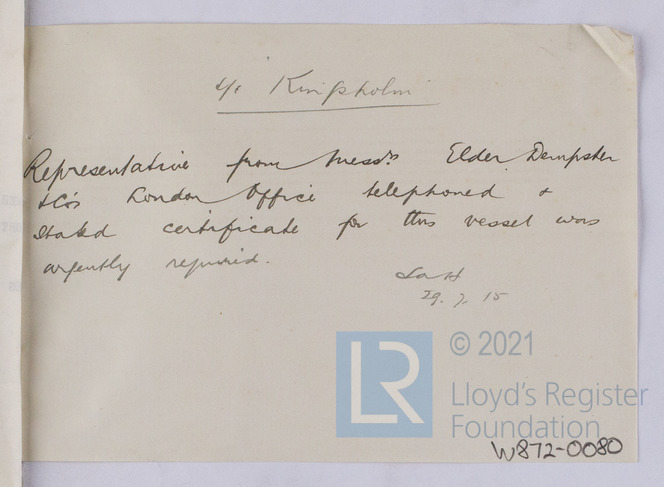 s/s Kingsholm
Representative from Messrs Elder Dempster
& Co's London Office telephoned &
stated certificate for this vessel was
urgently required.
29.7.15
LR
© 2021
Lloyd's Register
Foundation
W872-0080